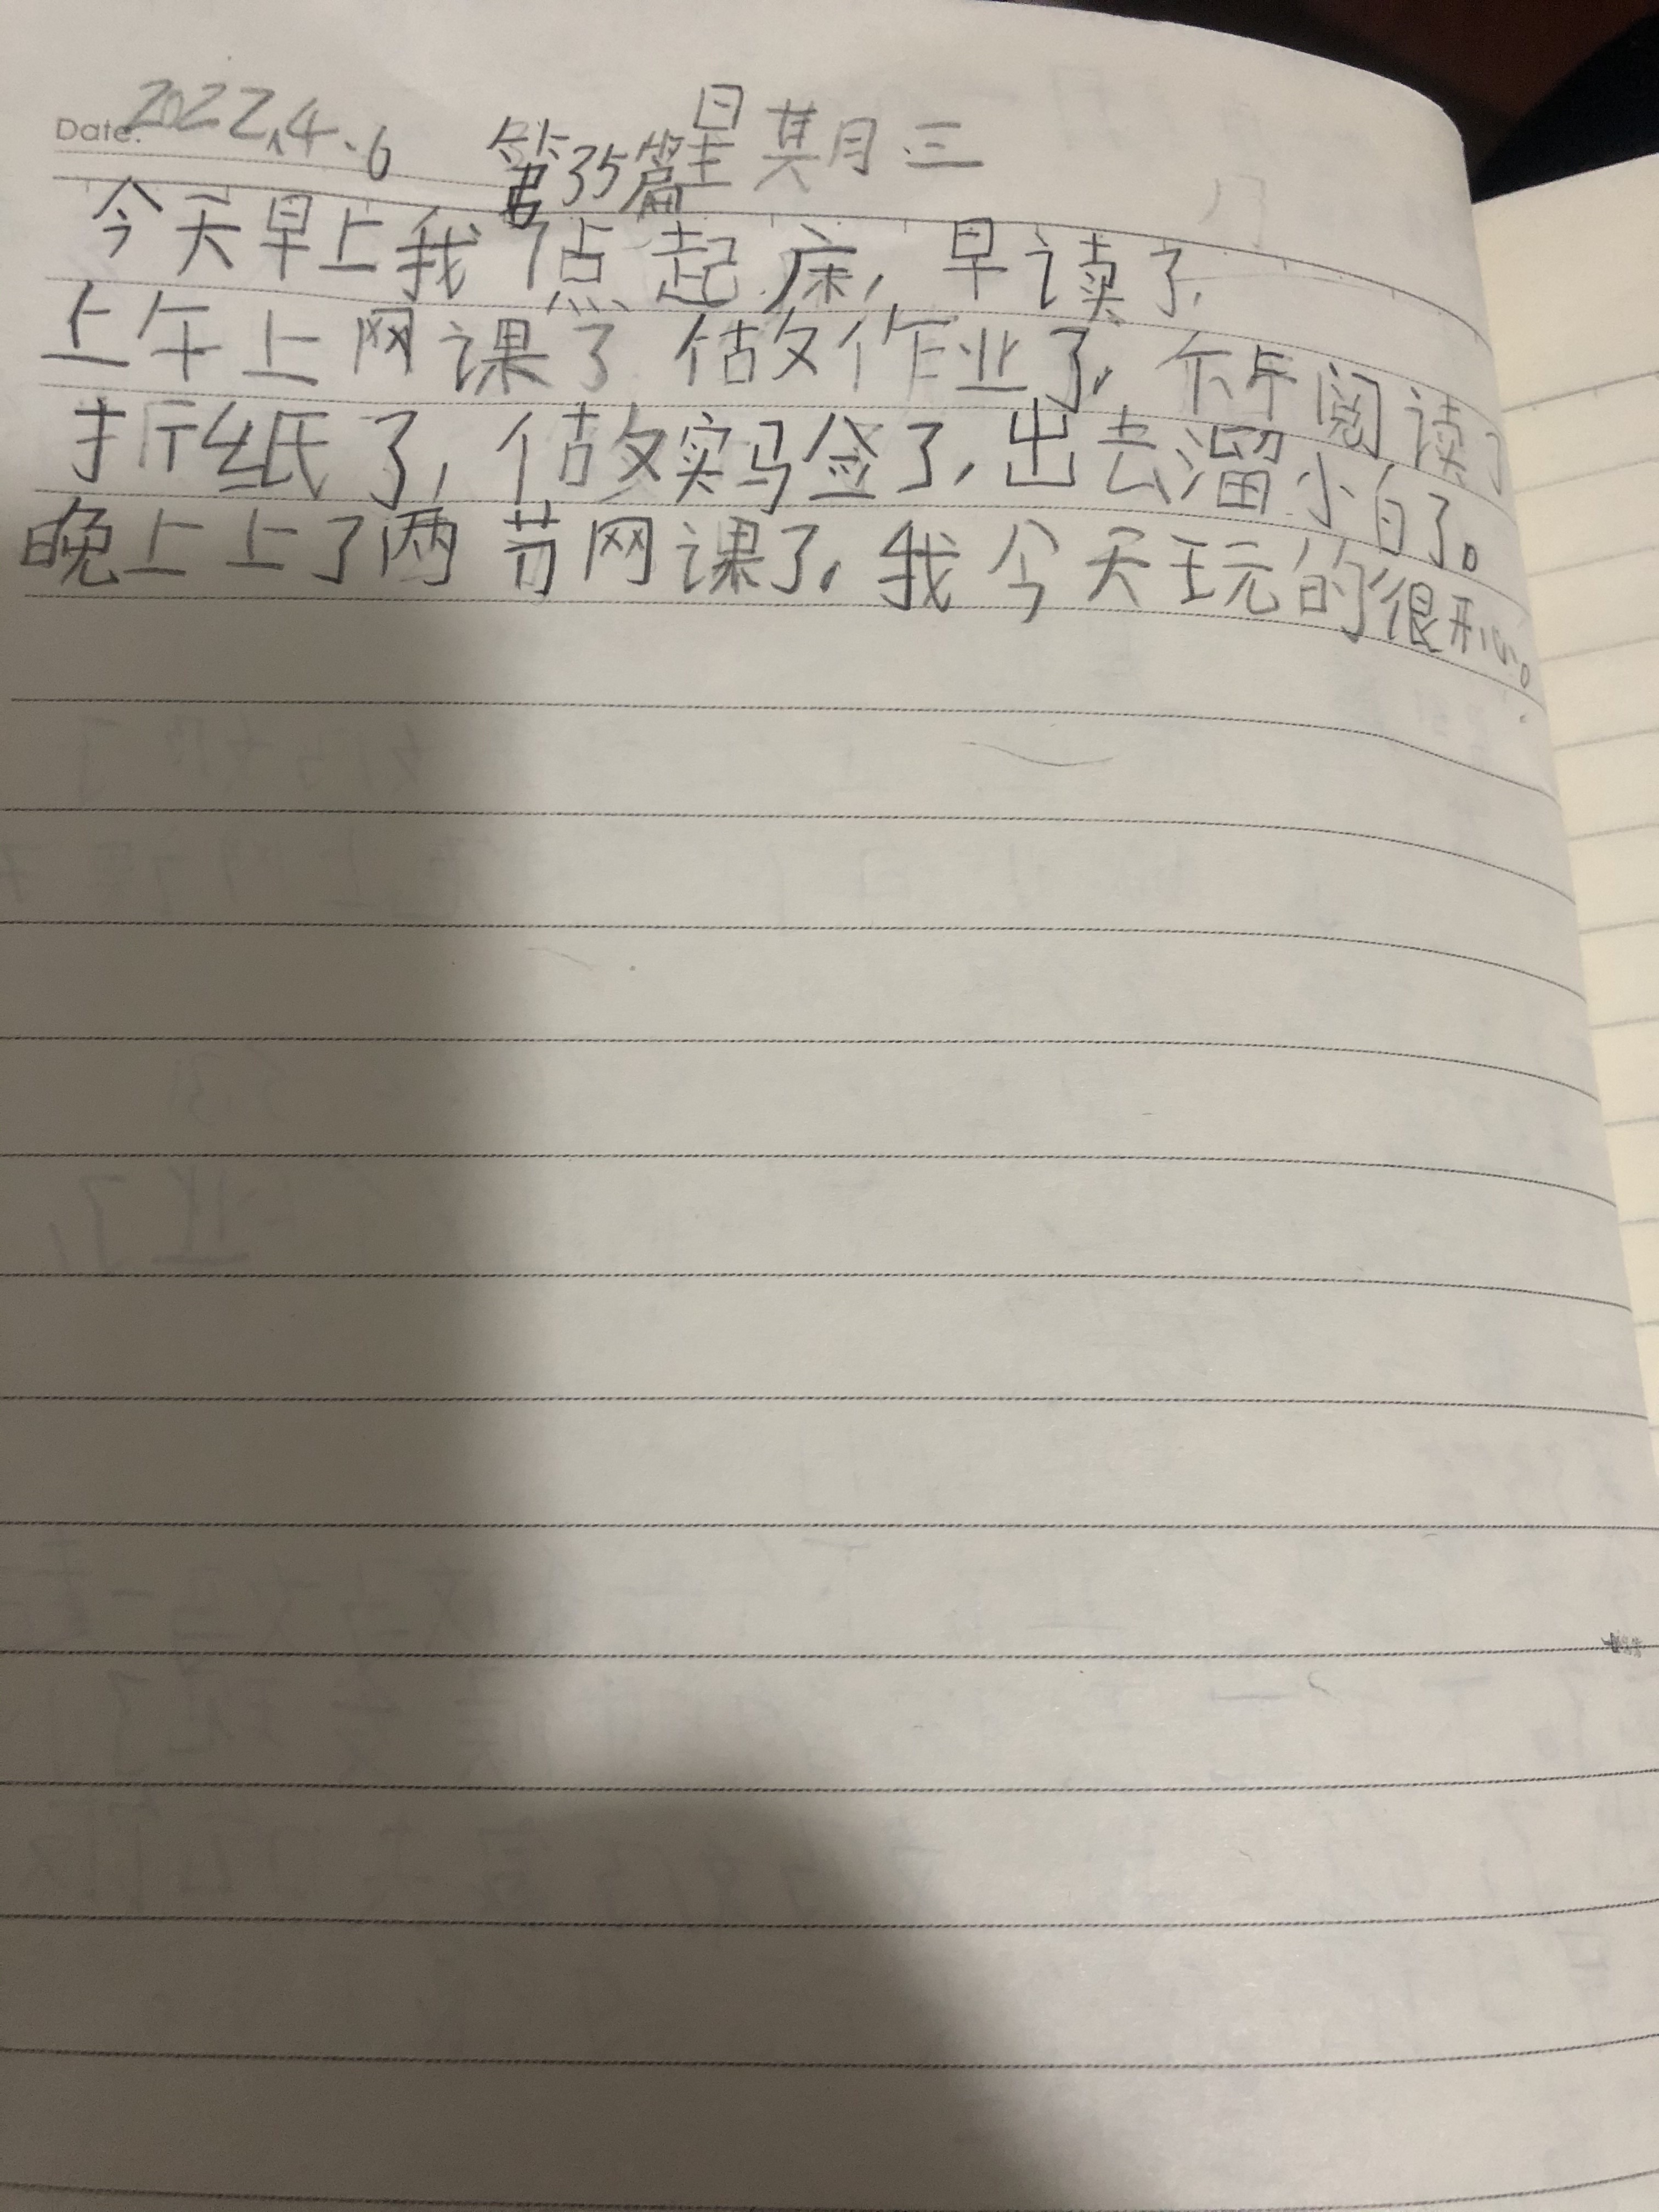 Date: 2022.4.6 第35篇 星其月三
今天早上我7点起床,早读了,
上午上网课了 做作业了,下午阅读了
折纸了,做实马佥了,出去溜小白了。
晚上上了两节网课了,我今天玩的很开心。